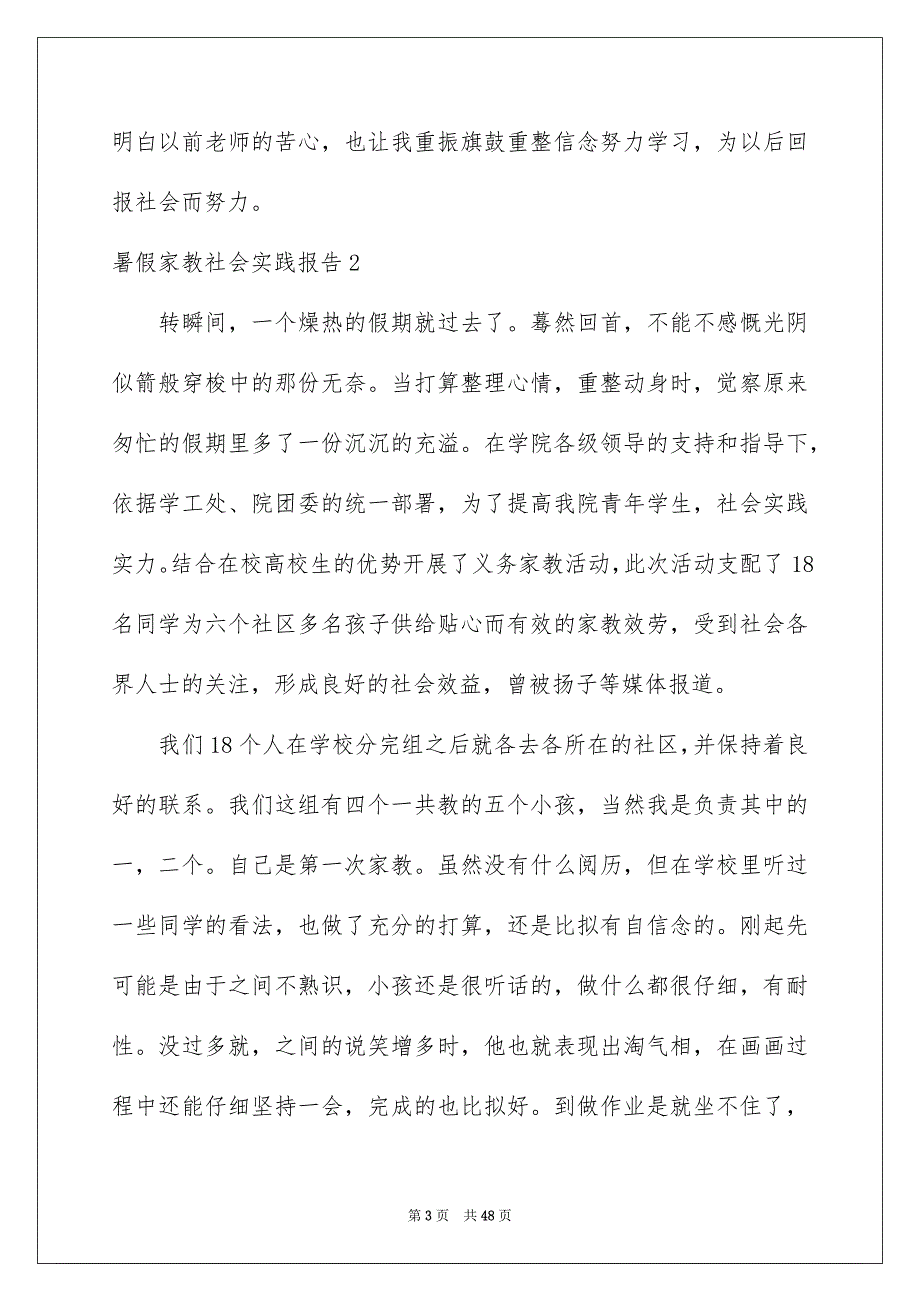 明白以前老师的苦心，也让我重振旗鼓重整信念努力学习，为以后回
报社会而努力。
暑假家教社会实践报告2
转瞬间，一个燥热的假期就过去了。蓦然回首，不能不感慨光阴
似箭般穿梭中的那份无奈。当打算整理心情，重整动身时，觉察原来
匆忙的假期里多了一份沉沉的充溢。在学院各级领导的支持和指导下，
依据学工处、院团委的统一部署，为了提高我院青年学生，社会实践
实力。结合在校高校生的优势开展了义务家教活动，此次活动支配了18
名同学为六个社区多名孩子供给贴心而有效的家教效劳，受到社会各
界人士的关注，形成良好的社会效益，曾被扬子等媒体报道。
我们18个人在学校分完组之后就各去各所在的社区，并保持着良
好的联系。我们这组有四个一共教的五个小孩，当然我是负责其中的
一，二个。自己是第一次家教。虽然没有什么阅历，但在学校里听过
一些同学的看法，也做了充分的打算，还是比拟有自信念的。刚起先
可能是由于之间不熟识，小孩还是很听话的，做什么都很仔细，有耐
性。没过多就，之间的说笑增多时，他也就表现出淘气相，在画画过
程中还能仔细坚持一会，完成的也比拟好。到做作业是就坐不住了，
第3页 共48页